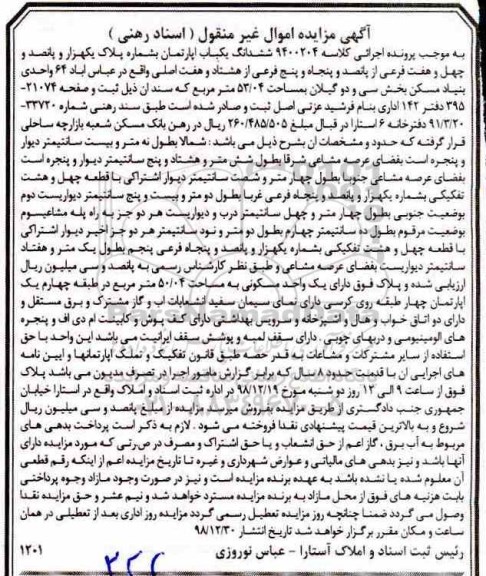 آگهی مزایده اموال غیر منقول ( اسناد رهنی )
به موجب پرونده اجرائی کلاسه ۹۴۰۰۲۰۴ ششدانگ یکباب اپارتمان بشماره پلاک یکهزار و پانصد و
چهل و هفت فرعی از پانصد و پنجاه و پنج فرعی از هشتاد و هفت اصلی واقع در عباس اباد ۶۴ واحدی
بنیاد مسکن بخش سی و دو گیلان بمساحت ۵۳/۰۴ متر مربع که سند ان ذیل ثبت و صفحه ۲۱۰۷۴-
۳۹۵ دفتر ۱۴۲ اداری بنام فرشید عزتی اصل ثبت و صادر شده است طبق سند رهنی شماره ۳۳۷۲۰-
۹۱/۳/۲۰ دفترخانه ۶ استارا در قبال مبلغ ۲۶۰/۴۸۵/۵۰۵ ریال در رهن بانک مسکن شعبه بازارچه ساحلی
قرار گرفته که حدود و مشخصات ان بشرح ذیل می باشد : شمالا بطول نه متر و بیست سانتیمتر دیوار
و پنجره است بفضای عرصه مشاعی شرقا بطول شش متر و هشتاد و پنج سانتیمتر دیوار و پنجره است
بفضای عرصه مشاعی جنوبا بطول چهار متر و شصت سانتیمتر دیوار اشتراکی با قطعه چهل و هشت
تفکیکی بشماره یکهزار و پانصد و پنجاه فرعی غربا بطول دو متر و بیست و پنج سانتیمتر دیواریست دوم
بوضعیت جنوبی بطول چهار متر و چهل سانتیمتر درب و دیواریست هر دو جز به راه پله مشاعیسوم
بوضعیت مرقوم بطول ده سانتیمتر چهارم بطول دو متر و نود سانتیمتر هر دو جز اخیر دیوار اشتراکی
با قطعه چهل و هشت تفکیکی بشماره یکهزار و پانصد و پنجاه فرعی پنجم بطول یک متر و هفتاد
سانتیمتر دیواریست بفضای عرصه مشاعی و طبق نظر کارشناس رسمی به پانصد و سی میلیون ریال
ارزیابی شده و پلاک فوق دارای یک واحد مسکونی به مساحت ۵۰/۰۴ متر مربع در طبقه چهارم یک
اپارتمان چهار طبقه روی کرسی دارای نمای سیمان سفید انشعابات اب و گاز مشترک و برق مستقل و
دارای دو اتاق خواب و هال و اشپزخانه و سرویس بهداشتی دارای کف پوش و کابینت ام دی اف و پنجره
های الومینیومی و دربهای چوبی . دارای سقف لمبه و پوشش سقف ایرانیت می باشد این واحد با حق
استفاده از سایر مشترکات و مشاعات به قدر حصه طبق قانون تفکیک و تملک آپارتمانها و ایین نامه
های اجرایی ان با قدمت حدود ۸ سال که برابر گزارش مامور اجرا در تصرف مدیون می باشد پلاک
فوق از ساعت ۹ الی ۱۲ روز دو شنبه مورخ ۹۸/۱۲/۱۹ در اداره ثبت اسناد و املاک واقع در استارا خیابان
جمهوری جنب دادگستری از طریق مزایده بفروش میرسد. مزایده از مبلغ پانصد و سی میلیون ریال
شروع و به بالاترین قیمت پیشنهادی نقدا فروخته می شود . لازم به ذکر است پرداخت بدهی های
مربوط به آب برق ، گاز اعم از حق انشعاب و یا حق اشتراک و مصرف در صورتی که مورد مزایده دارای
آنها باشد و نیز بدهی های مالیاتی و عوارض شهرداری و غیره تا تاریخ مزایده اعم از اینکه رقم قطعی
آن معلوم شده یا نشده باشد به عهده برنده مزایده است و نیز در صورت وجود مازاد وجوه پرداختی
بابت هزینه های فوق از محل مازاد به برنده مزایده مسترد خواهد شد و نیم عشر و حق مزایده نقدا
وصول می گردد ضمنا چنانچه روز مزایده تعطیل رسمی گردد مزایده روز اداری بعد از تعطیلی در همان
ساعت و مکان مقرر برگزار خواهد شد تاریخ انتشار ۹۸/۱۲/۳۰
رئیس ثبت اسناد و املاک آستارا - عباس نوروزی ۱۲۰۱